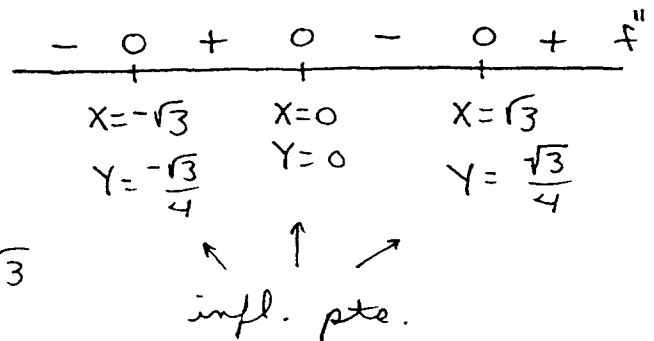 - 0 + 0 - 0 + f"
X=-√3 X=0 X=√3
Y=-√3/4 Y=0 Y=√3/4
√3
infl. pts.